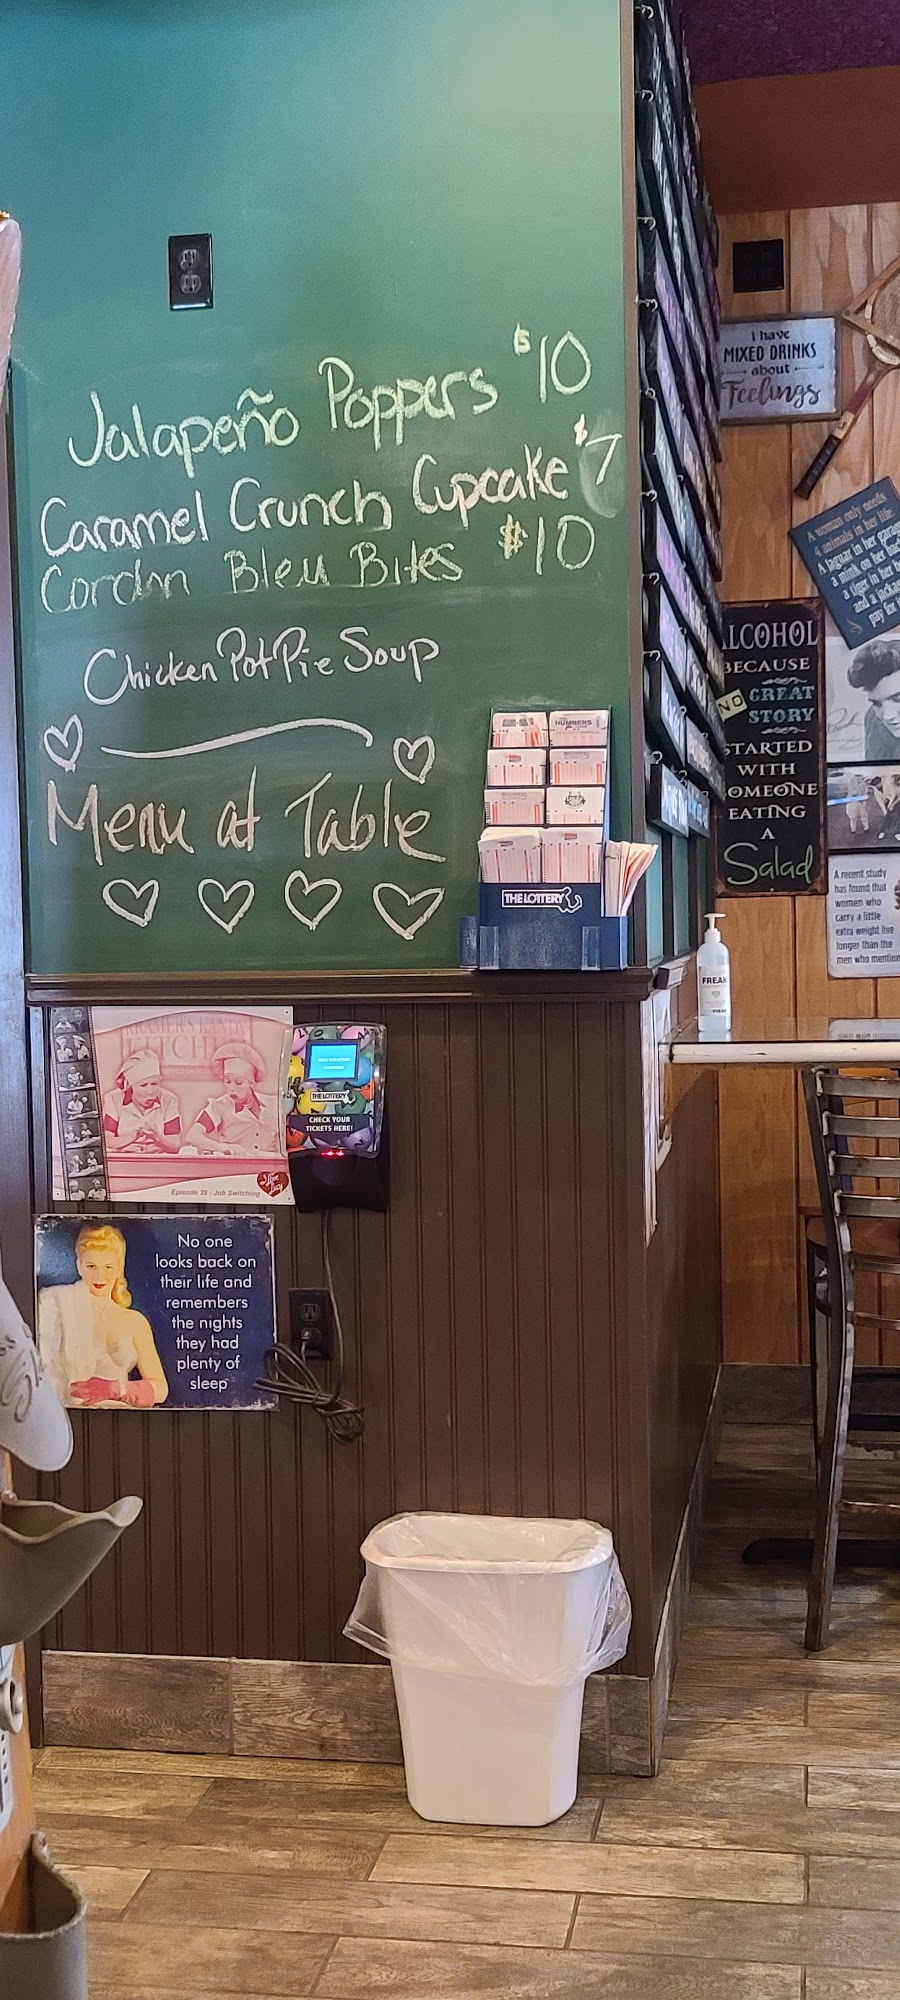 Jalapeño Poppers $10
Caramel Crunch Cupcake $7
Cordon Bleu Bites $10
Chicken Pot Pie Soup
Menu at Table
NUMBERS
THE LOTTERY
KRAMER'S KANDY
KITCHEN
Episode 39 - Job Switching
I Love Lucy
THE LOTTERY
CHECK YOUR
TICKETS HERE!
No one
looks back on
their life and
remembers
the nights
they had
plenty of
sleep
I have
MIXED DRINKS
about
Feelings
A woman only needs
4 animals in her life.
A jaguar in her garage
a mink on her back
a tiger in her
and a jackass
pay for
ALCOHOL
BECAUSE
NO GREAT
STORY
STARTED
WITH
SOMEONE
EATING
A
Salad
A recent study
has found that
women who
carry a little
extra weight live
longer than the
men who mention
FREAK